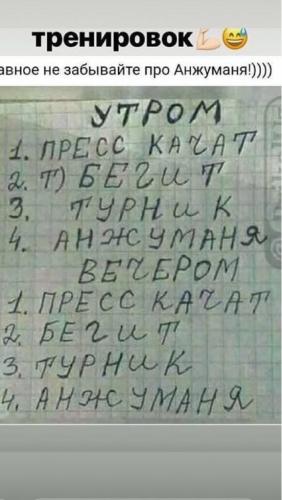 тренировок💪🏻😅
авное не забывайте про Анжуманя!))))
УТРОМ
1. ПРЕСС КАЧАТ
2. Т) БЕГИТ
3. ТУРНИК
4. АНЖУМАНЯ
ВЕЧЕРОМ
1. ПРЕСС КАЧАТ
2. БЕГИТ
3. ТУРНИК
4. АНЖУМАНЯ